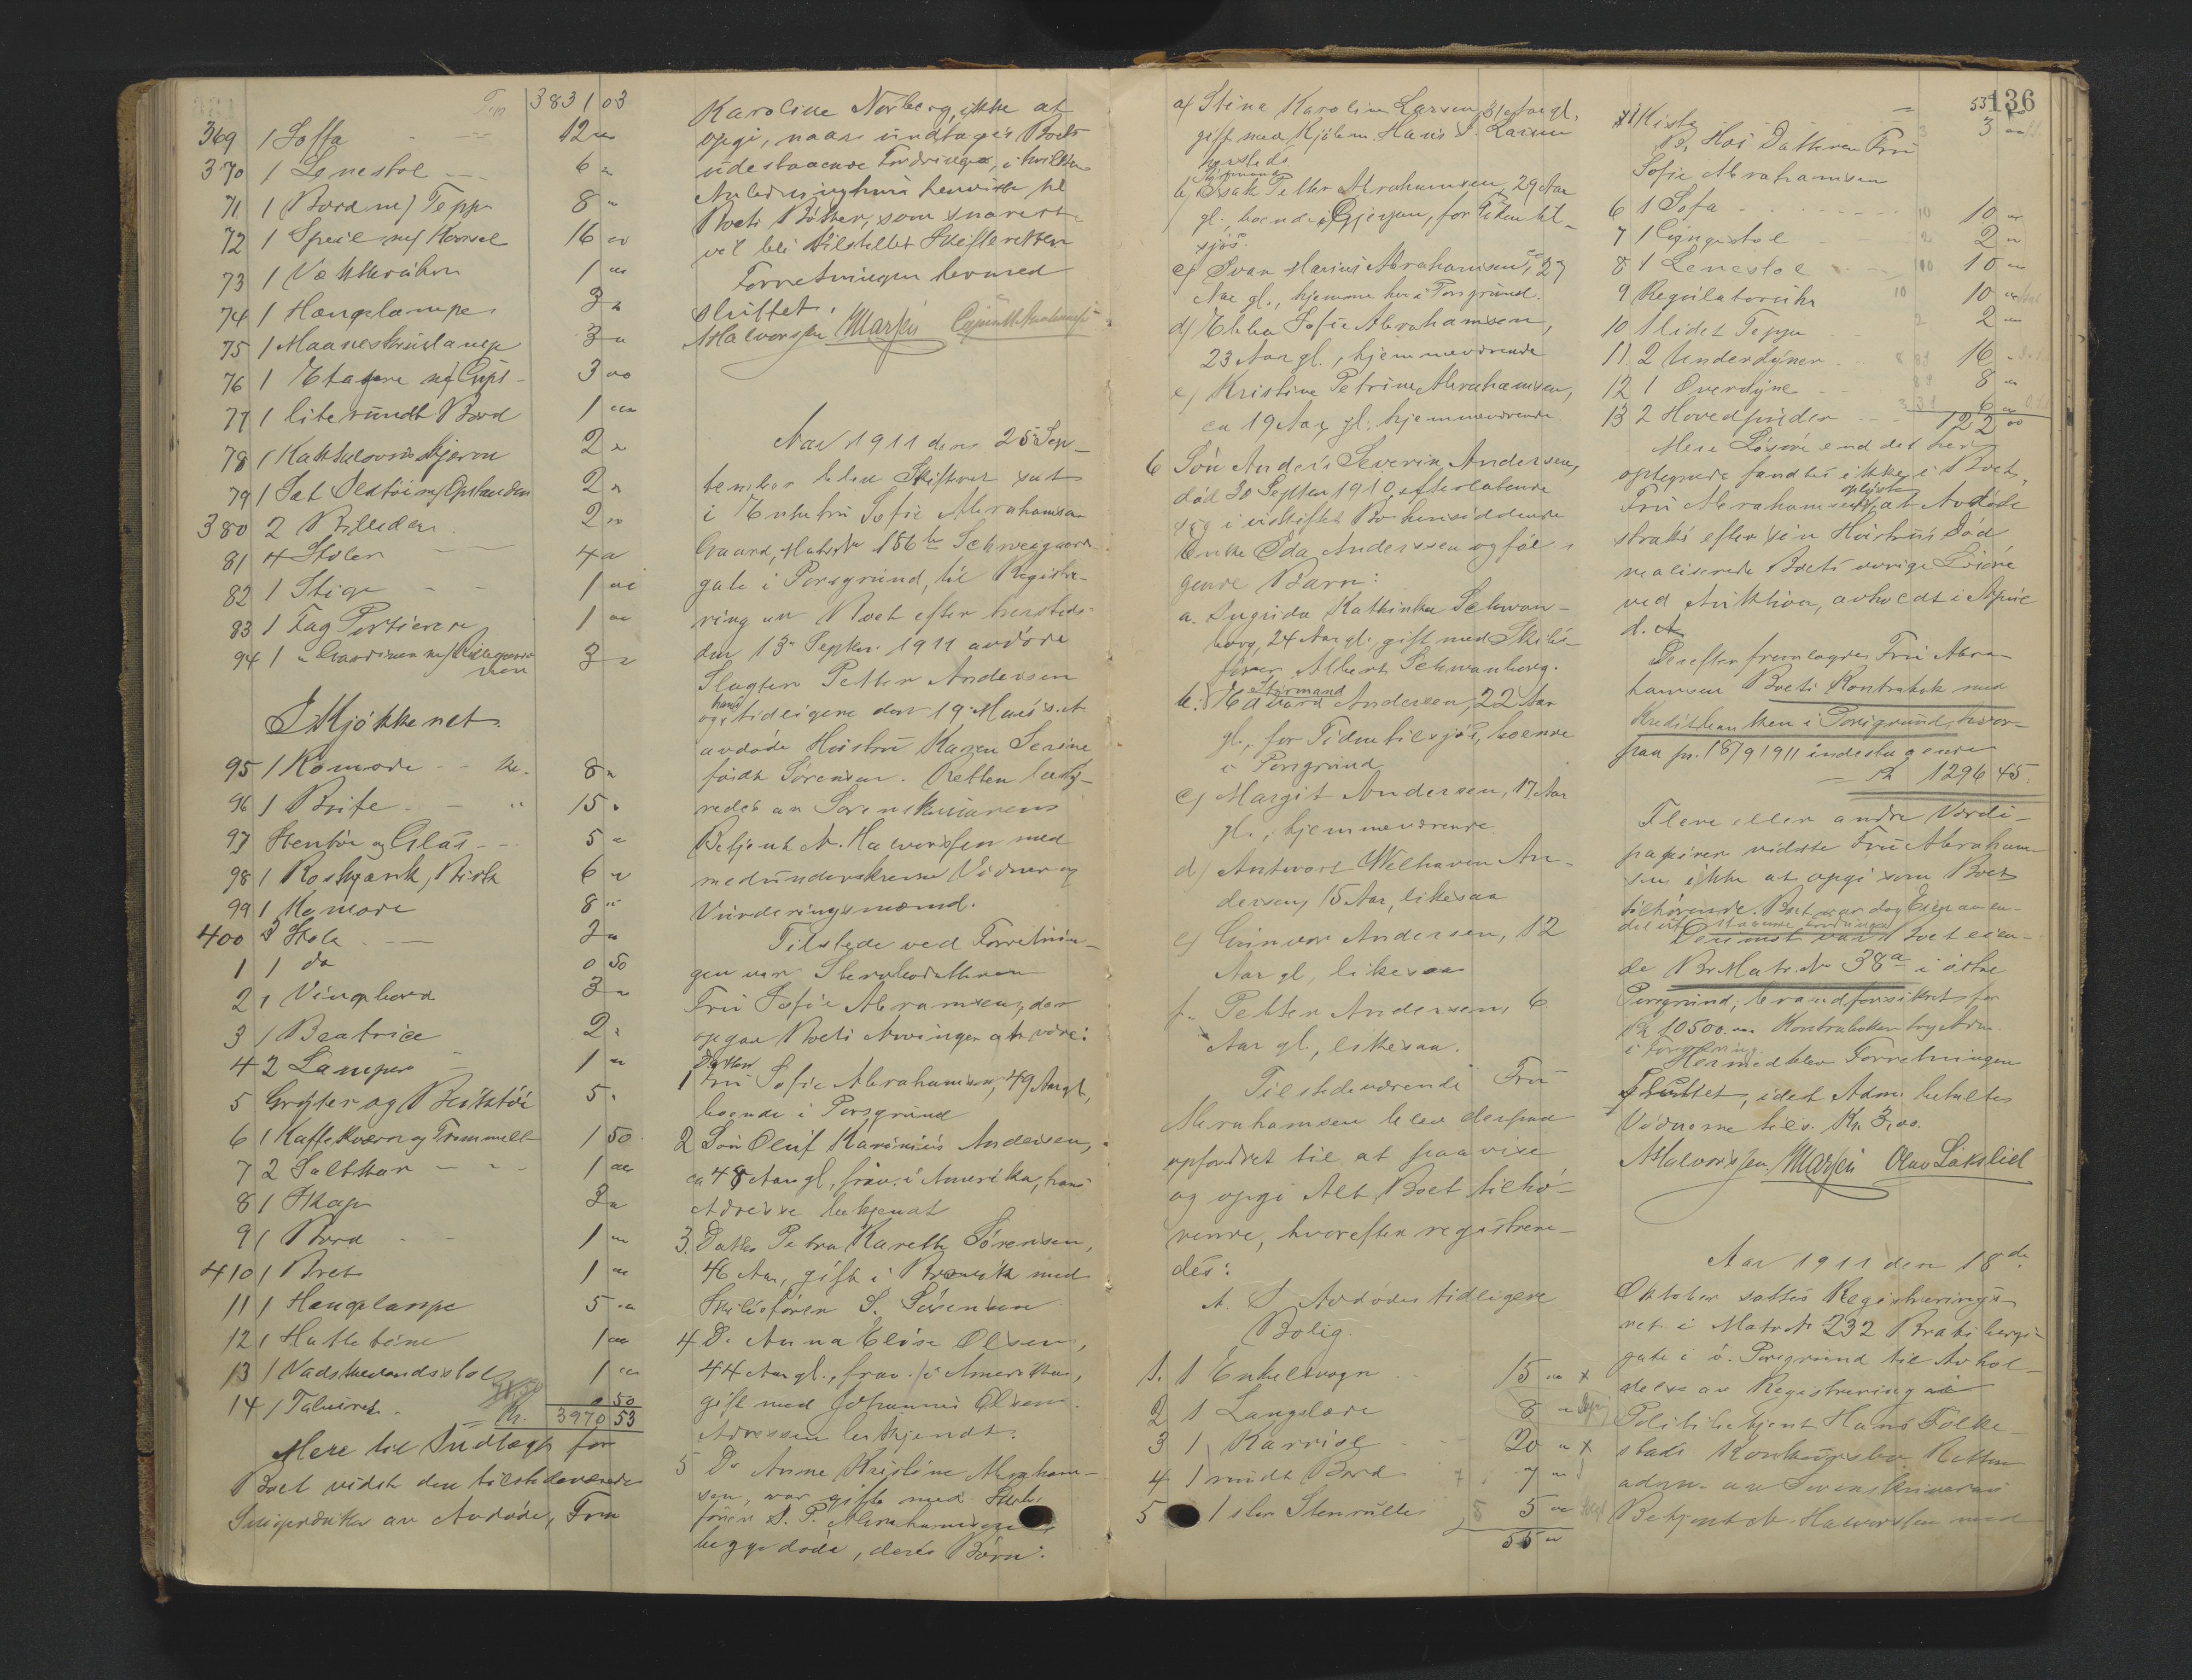 Trp 3831 03
369 1 Soffa 12 "
370 1 Lenestol 6 "
71 1 Bord m/ Teppe 8 "
72 1 Speil m/ Konsol 16 00
73 1 Vækkeruhr 1 00
74 1 Hængelampe 3 "
75 1 Maaneskinslampe 3 "
76 1 Etagere m/ Gips 3 00
77 1 lite rundt Bord 1 00
78 1 Kakkelovnsskjerm 2 "
79 1 Sæt Ildtøi m/ Opstander 2 "
380 2 Billeder 2 00
81 4 Stoler 4 "
82 1 Stige 1 00
83 1 Fag Portierer 1 00
94 1 " Gardiner m/ 3 "
I Kjøkkenet.
95 1 Komode kr. 8 "
96 1 Buffe " 15 "
97 Stentøi og Glas 5 "
98 1 6 "
99 1 Komode 8 "
400 3 Stole 2 "
1 1 do 0 50
2 1 3 "
3 1 Beatrice 2 "
4 2 Lamper 1 "
5 Gryter og Bliktøi 5 "
6 1 Kaffekværn og Trommell 1 50
7 2 Saltkar 1 00
8 1 Skap 2 "
9 1 Bord 1 "
410 1 Bret 1 00
11 1 Hængelampe 5 00
12 1 1 00
13 1 Vadskevandsstol 1 "
14 1 Talurret 0 50
Kr. 3970 53
Mere til Indtægt for
Boet vidste den tilstedeværende
Svigerdatter av Avdøde, Fru
Karoline Norberg, ikke at
opgi, naar undtages Boets
udestaaende Fordringer, i hvilken
Anledning henviste til
Boets Bøker, som snarest
vil bli tilstillet Skifteretten
Forretningen hermed
sluttet.
AHalvorssen Marsen
Aar 1911 den 25 Sep-
tember blev Skifteret sat
i Enkefru Sofie Abrahamsens
Gaard, Matr. Nr 156 b Schweigaards
gate i Porsgrund, til Registre-
ring av Boet efter hersteds
den 13de Septbr. 1911 avdøde
Slagter Petter Andersen
og hans tidligere den 19 Mars s.A.
avdøde Hustru Karen Serine
født Sørensen. Retten besty-
redes av Sorenskriverens
Betjent A. Halvorssen med
medunderskrevne Vidner og
Vurderingsmænd.
Tilstede ved Forretnin-
gen var Stervbodatteren
Fru Sofie Abramsen, der
opgav Boets Arvinger at være:
1 Datter Fru Sofie Abrahamsen, 49 Aar gl.,
boende i Porsgrund
2 Søn Oluf Marinius Andersen,
ca 48 Aar gl., frav. i Amerika, hans
Adresse bekjendt
3. Datter Petra Karette Sørensen,
46 Aar, gift i Brevik med
Skibsfører S. Sørensen
4 Do Anna Elise Olsen,
44 Aar gl., frav. i Amerika,
gift med Johannes Olsen.
Adressen bekjendt.
5 Do Anne Kristine Abraham-
sen, var gift med Skibs-
fører S. P. Abrahamsen
begge døde, deres Børn:
a) Stina Karoline Larsen, 31 Aar gl.
gift med Kjøbm. Hans S. Larsen
hersteds
b) Styrmand Isak Petter Abrahamsen, 29 Aar
gl., boende i Gjerpen, for Tiden til-
sjøs.
c) Ivar Marius Abrahamsen, ca 27
Aar gl., hjemme her i Porsgrund.
d) Ebba Sofie Abrahamsen,
23 Aar gl., hjemmeværende
e) Kristine Petrine Abrahamsen,
ca 19 Aar gl. hjemmeværende
6 Søn Anders Severin Andersen,
død 30 Septbr 1910, efterlatende
sig i uskiftet Bo hensiddende
Enke Ida Anderssen og føl-
gende Barn:
a. Ingrida Kathinka Schwan-
borg, 24 Aar gl. gift med Skibs-
fører Albert Schwanborg.
b. Styrmand Edvard Andersen, 22 Aar
gl., for Tiden tilsjøs, boende
i Porsgrund
c) Margit Andersen, 17 Aar
gl., hjemmeværende
d) Antwort Welhaven An-
dersen, 15 Aar, likesaa
e) Gunvor Andersen, 12
Aar gl, likesaa
f. Petter Andersen, 6
Aar gl., likesaa.
Tilstedeværende Fru
Abrahamsen blev derpaa
opfordret til at paavise
og opgi Alt Boet tilhø-
rende, hvorefter registrere-
des:
A. I Avdødes tidligere
Bolig
1. 1 Enkeltvogn 15 00 x
2 1 Langslæde 8 "
3 1 Karriol 20 " x
4 1 rundt Bord 7 "
5 1 stor Stenrulle 5 00
55 "
136
55
1 Kiste 3 00
B. Hos Datteren Fru
Sofie Abrahamsen
6 1 Sofa 10 00
7 1 Gyngestol 2 "
8 1 Lenestol 10 "
9 Regulatoruhr 10 "
10 1 lidet Teppe 2 "
11 2 Underdyner 16 "
12 1 Overdyne 8 "
13 2 Hovedputer 6 "
122 00
Mere Løsøre end det her
optegnede fandtes ikke i Boet,
Fru Abrahamsen oplyste, at Avdøde
straks efter sin Hustrus Død
realiserede Boets øvrige Løsøre
ved Auktion, avholdt i April
d. A.
Derefter fremlagdes Fru Abra-
hamsen Boets Kontrabok med
Kreditbanken i Porsgrund, hvor-
paa pr. 18/9 1911 indestaaende
Kr. 1296 45.
Flere eller andre Værdi-
papirer vidste Fru Abraham-
sen ikke at opgi som Boet
tilhørende. Boet var dog Eier av en
del utestaaende Fordringer
Derimot var Boet eien-
de Br. Matr. Nr 38a i østre
Porsgrund, brandforsikret for
Kr 10500.00. Kontraboken tog Adm.
i Forvaring.
Hermed blev Forretningen
sluttet, idet Adm. betalte
Vidnerne tils. Kr. 3,00.
AHalvorssen Marsen Olav Lakslid
Aar 1911 den 18de
Oktober sattes Registrerings-
ret i Matr. Nr 232 Bratsbergs-
gate i ø. Porsgrund til Avhol-
delse av Registrering i
Politibetjent Hans Folke-
stads Konkursbo. Retten
adm. av Sorenskriverens
Betjent A. Halvorssen med